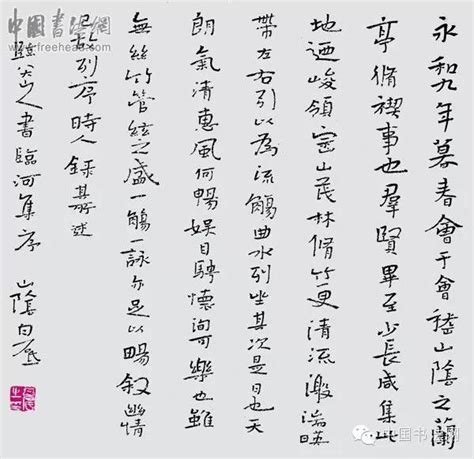 中國書法網
www.freehead.com
永和九年暮春會于會稽山陰之蘭
亭脩禊事也羣賢畢至少長咸集此
地迺峻領崇山茂林脩竹更清流激湍暎
帶左右引以為流觴曲水列坐其次是日也天
朗氣清惠風何暢娛目騁懷洵可樂也雖
無絲竹管絃之盛一觴一詠亦足以暢敘幽情
已故列序時人錄其所述
臨八大山人書臨河集序 山陰白砥
中国书法网